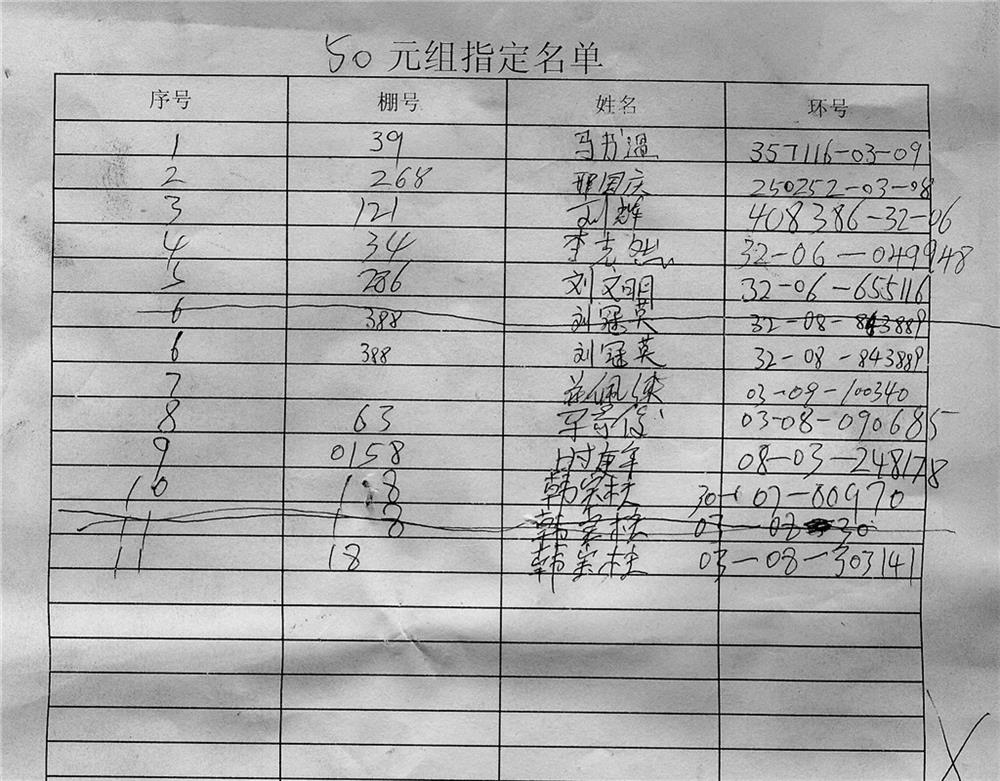 50元组指定名单
序号 棚号 姓名 环号
1 39 马 357116-03-09
2 268 邢国庆 250252-03-08
3 121 刘辉 408386-32-06
4 34 李志 32-06-049948
5 286 刘文明 32-06-655116
6 388 刘冠英 32-08-843889
6 388 刘冠英 32-08-843889
7 佩 03-09-100340
8 63 俊 03-08-090685
9 0158 时庚年 08-03-248178
10 18 韩宗柱 30-07-80970
11 18 韩宗柱 03-08 30
11 18 韩宗柱 03-08-303141